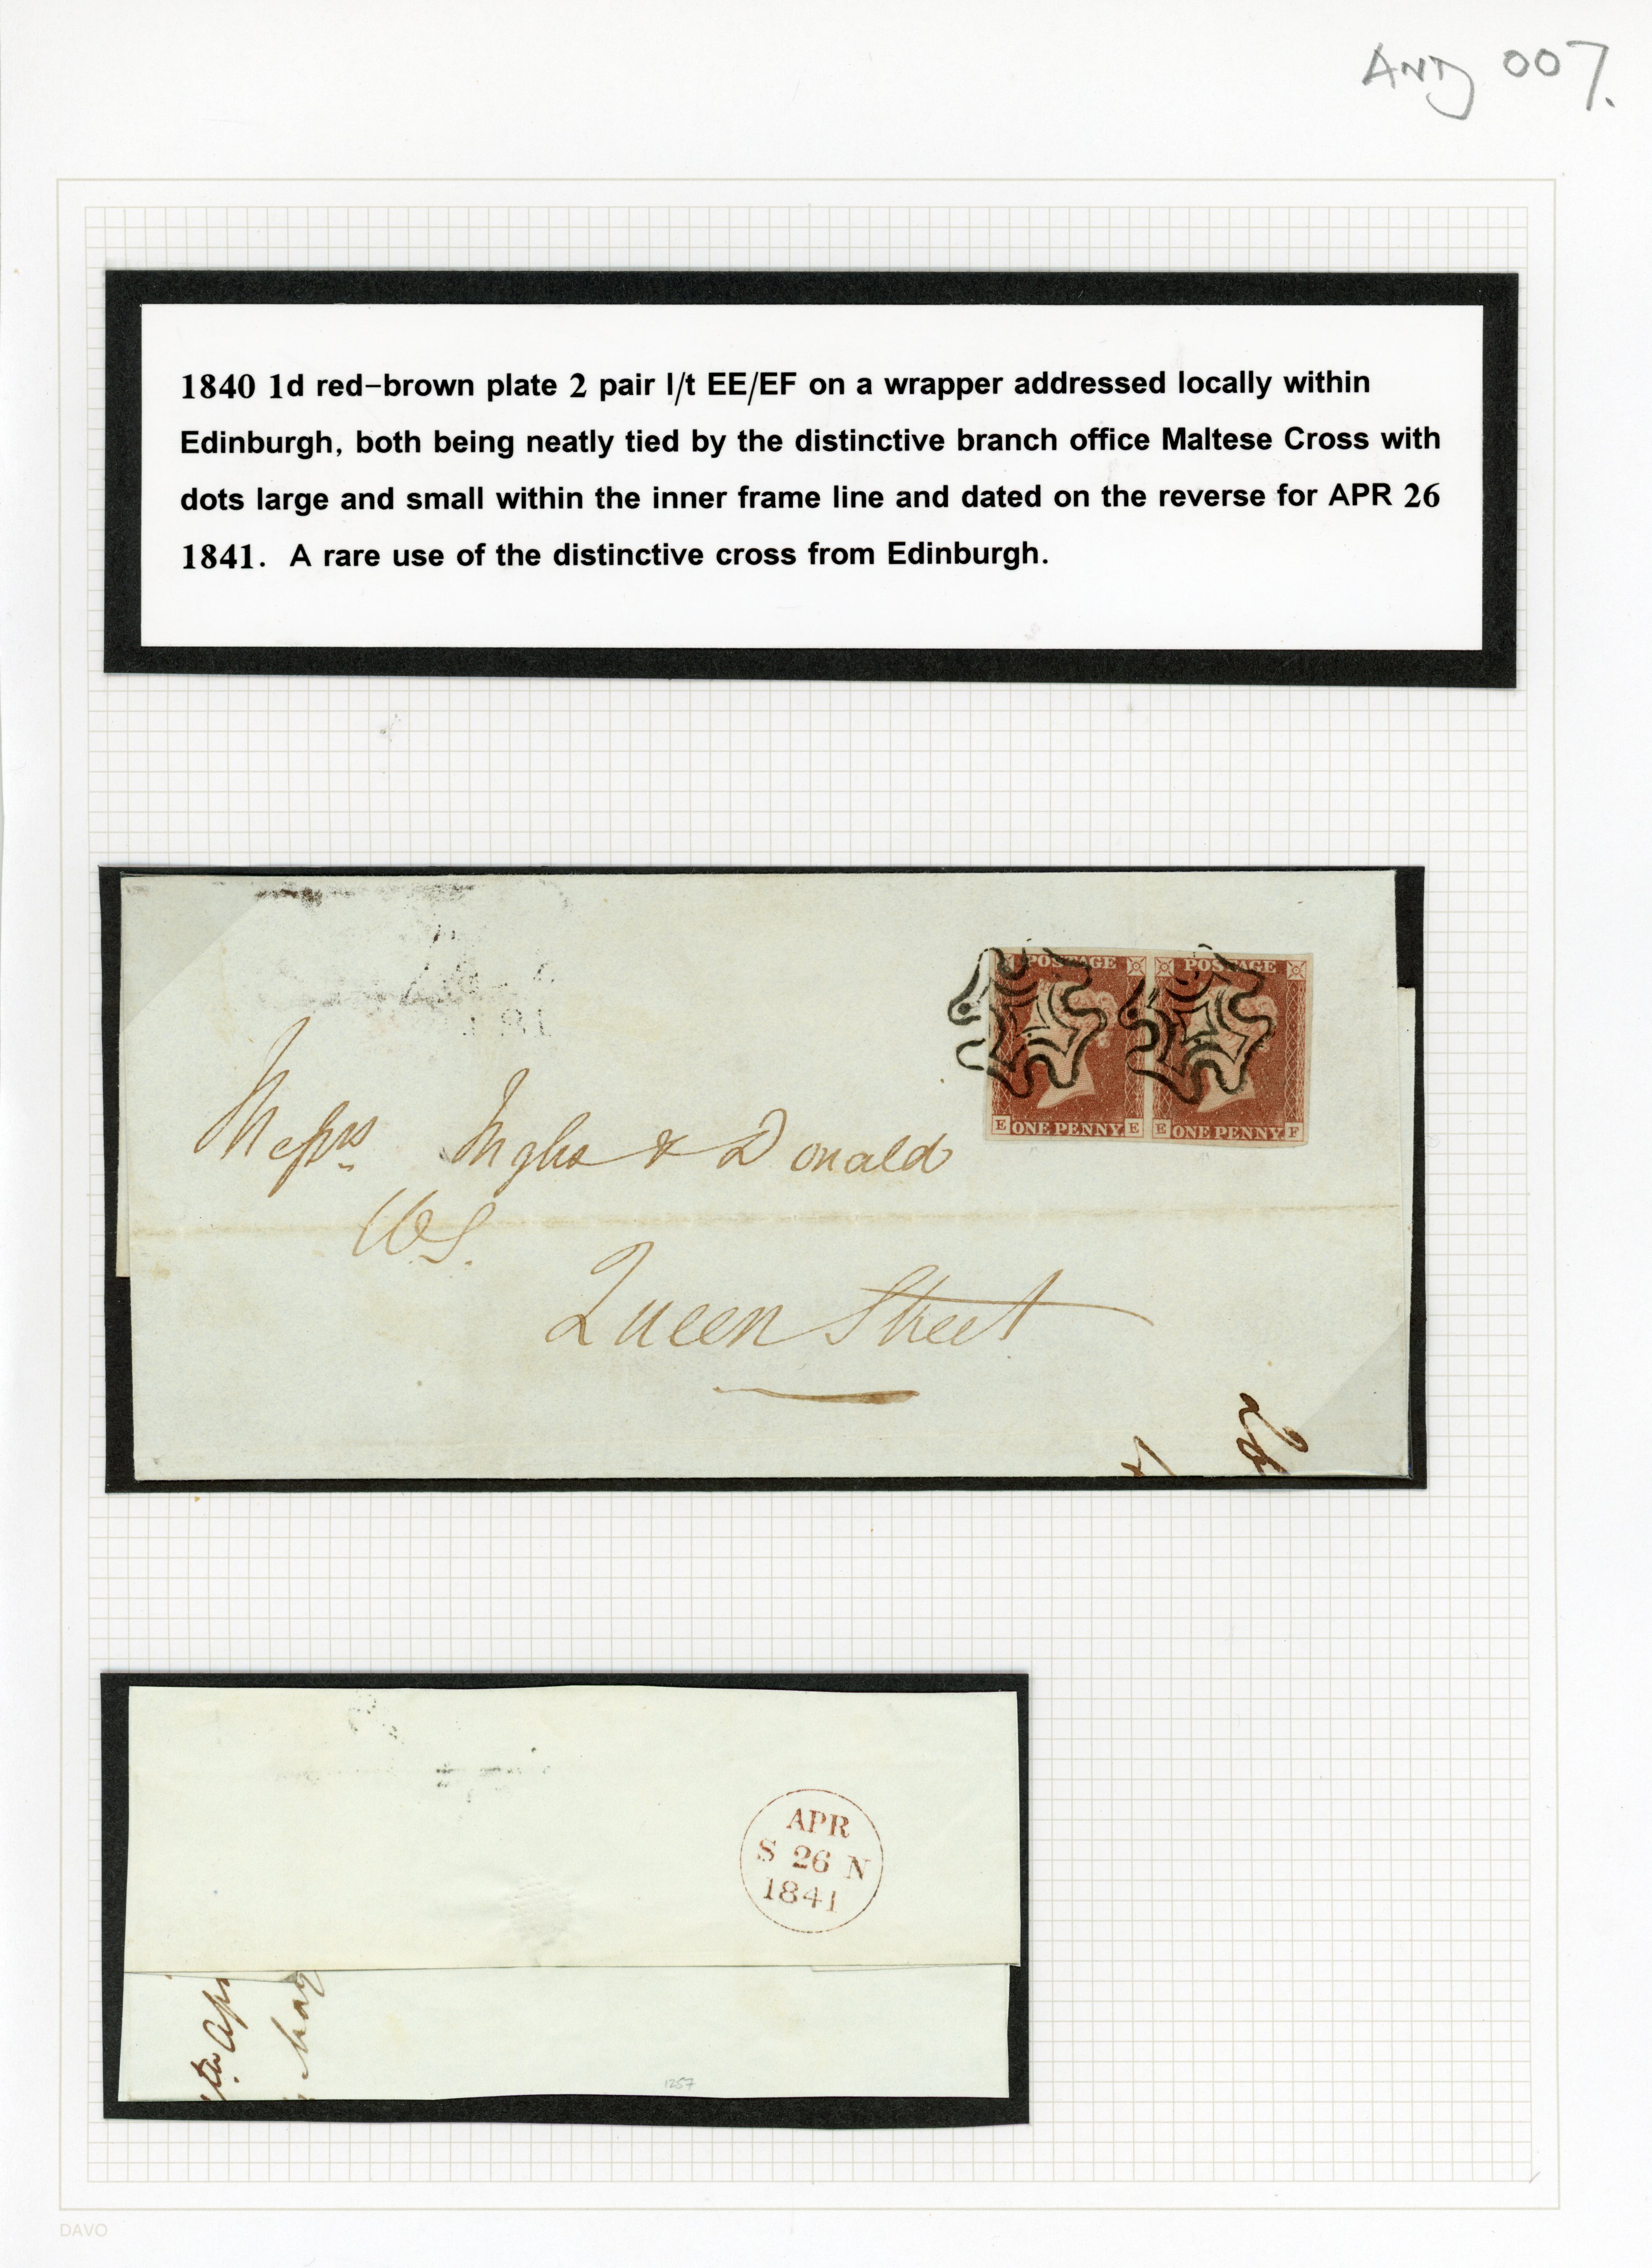 AND 007.
1840 1d red-brown plate 2 pair l/t EE/EF on a wrapper addressed locally within
Edinburgh, both being neatly tied by the distinctive branch office Maltese Cross with
dots large and small within the inner frame line and dated on the reverse for APR 26
1841. A rare use of the distinctive cross from Edinburgh.
POSTAGE POSTAGE
E ONE PENNY E E ONE PENNY F
Messrs Inglis & Donald
WS.
Queen Street
APR
S 26 N
1841
1257
DAVO